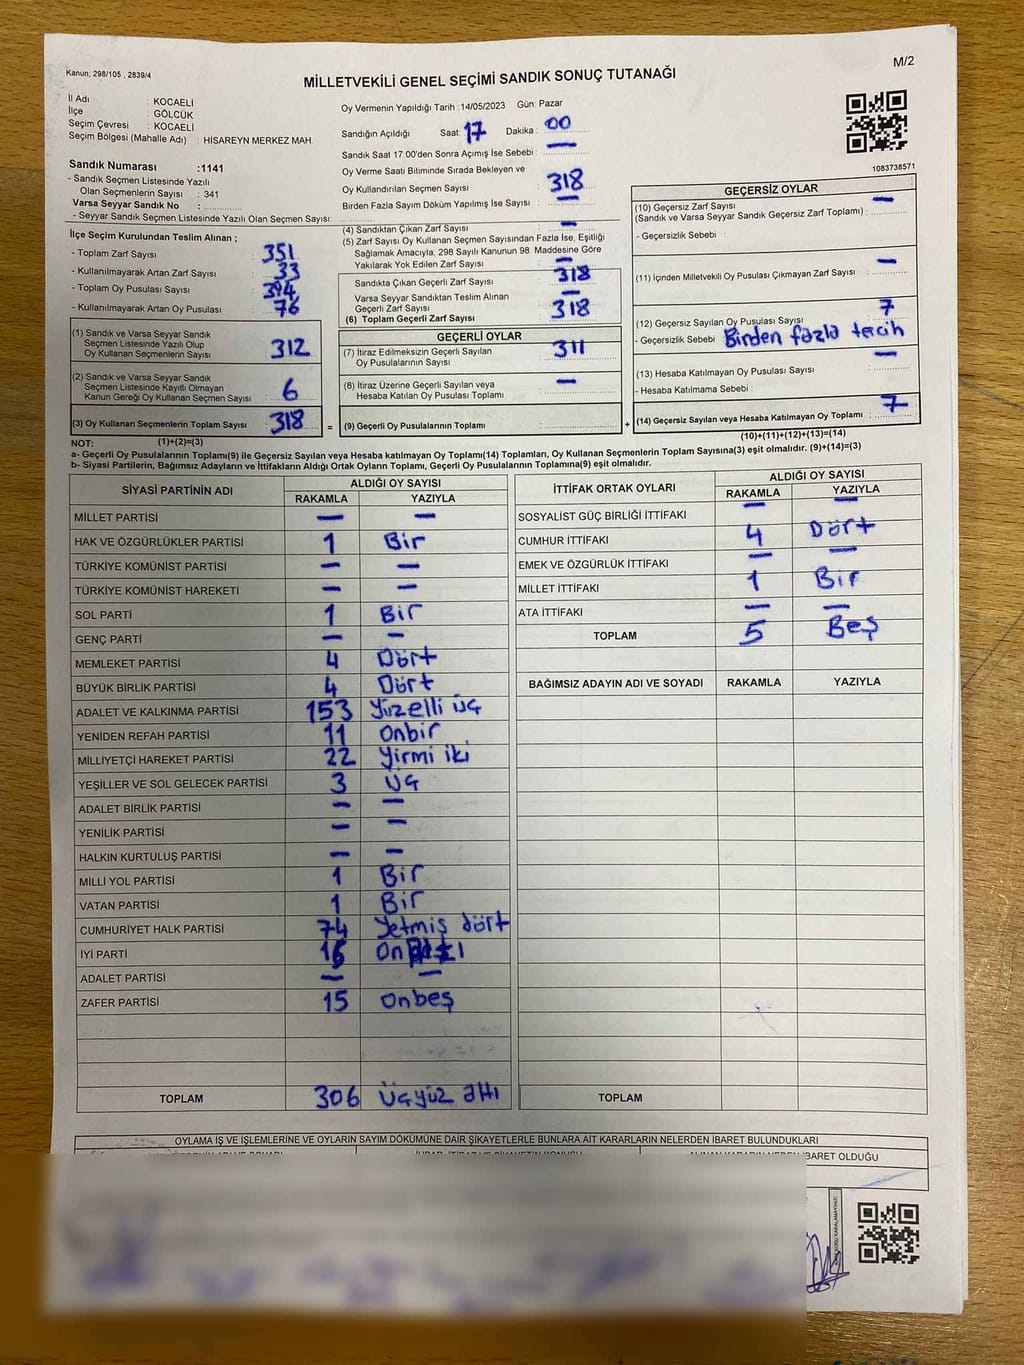 Kanun; 298/105 , 2839/4
M/2
MİLLETVEKİLİ GENEL SEÇİMİ SANDIK SONUÇ TUTANAĞI
İl Adı : KOCAELİ
İlçe : GÖLCÜK
Seçim Çevresi : KOCAELİ
Seçim Bölgesi (Mahalle Adı) : HİSAREYN MERKEZ MAH.
Sandık Numarası :1141
- Sandık Seçmen Listesinde Yazılı
Olan Seçmenlerin Sayısı : 341
Varsa Seyyar Sandık No :
- Seyyar Sandık Seçmen Listesinde Yazılı Olan Seçmen Sayısı:
Oy Vermenin Yapıldığı Tarih :14/05/2023 Gün: Pazar
Sandığın Açıldığı Saat: 17 Dakika : 00
Sandık Saat 17:00'den Sonra Açımış İse Sebebi : —
Oy Verme Saati Bitiminde Sırada Bekleyen ve
Oy Kullandırılan Seçmen Sayısı : 318
Birden Fazla Sayım Döküm Yapılmış İse Sayısı : —
1083738571
İlçe Seçim Kurulundan Teslim Alınan ;
- Toplam Zarf Sayısı : 351
- Kullanılmayarak Artan Zarf Sayısı : 33
- Toplam Oy Pusulası Sayısı : 394
- Kullanılmayarak Artan Oy Pusulası : 76
(1) Sandık ve Varsa Seyyar Sandık
Seçmen Listesinde Yazılı Olup
Oy Kullanan Seçmenlerin Sayısı : 312
(2) Sandık ve Varsa Seyyar Sandık
Seçmen Listesinde Kayıtlı Olmayan
Kanun Gereği Oy Kullanan Seçmen Sayısı : 6
(3) Oy Kullanan Seçmenlerin Toplam Sayısı : 318
(4) Sandıktan Çıkan Zarf Sayısı : —
(5) Zarf Sayısı Oy Kullanan Seçmen Sayısından Fazla İse, Eşitliği
Sağlamak Amacıyla, 298 Sayılı Kanunun 98. Maddesine Göre
Yakılarak Yok Edilen Zarf Sayısı : —
Sandıkta Çıkan Geçerli Zarf Sayısı : 318
Varsa Seyyar Sandıktan Teslim Alınan
Geçerli Zarf Sayısı : —
(6) Toplam Geçerli Zarf Sayısı : 318
GEÇERLİ OYLAR
(7) İtiraz Edilmeksizin Geçerli Sayılan
Oy Pusulalarının Sayısı : 311
(8) İtiraz Üzerine Geçerli Sayılan veya
Hesaba Katılan Oy Pusulası Toplamı : —
= (9) Geçerli Oy Pusulalarının Toplamı :
GEÇERSİZ OYLAR
(10) Geçersiz Zarf Sayısı
(Sandık ve Varsa Seyyar Sandık Geçersiz Zarf Toplamı) : —
- Geçersizlik Sebebi :
(11) İçinden Milletvekili Oy Pusulası Çıkmayan Zarf Sayısı : —
(12) Geçersiz Sayılan Oy Pusulası Sayısı : 7
- Geçersizlik Sebebi : Birden fazla tercih
(13) Hesaba Katılmayan Oy Pusulası Sayısı : —
- Hesaba Katılmama Sebebi :
+ (14) Geçersiz Sayılan veya Hesaba Katılmayan Oy Toplamı : 7
NOT: (1)+(2)=(3) (10)+(11)+(12)+(13)=(14)
a- Geçerli Oy Pusulalarının Toplamı(9) ile Geçersiz Sayılan veya Hesaba katılmayan Oy Toplamı(14) Toplamları, Oy Kullanan Seçmenlerin Toplam Sayısına(3) eşit olmalıdır. (9)+(14)=(3)
b- Siyasi Partilerin, Bağımsız Adayların ve İttifakların Aldığı Ortak Oyların Toplamı, Geçerli Oy Pusulalarının Toplamına(9) eşit olmalıdır.
SİYASİ PARTİNİN ADI ALDIĞI OY SAYISI
RAKAMLA YAZIYLA
MİLLET PARTİSİ — —
HAK VE ÖZGÜRLÜKLER PARTİSİ 1 Bir
TÜRKİYE KOMÜNİST PARTİSİ — —
TÜRKİYE KOMÜNİST HAREKETİ — —
SOL PARTİ 1 Bir
GENÇ PARTİ — —
MEMLEKET PARTİSİ 4 Dört
BÜYÜK BİRLİK PARTİSİ 4 Dört
ADALET VE KALKINMA PARTİSİ 153 Yüzelli üç
YENİDEN REFAH PARTİSİ 11 onbir
MİLLİYETÇİ HAREKET PARTİSİ 22 Yirmi iki
YEŞİLLER VE SOL GELECEK PARTİSİ 3 Üç
ADALET BİRLİK PARTİSİ — —
YENİLİK PARTİSİ — —
HALKIN KURTULUŞ PARTİSİ — —
MİLLİ YOL PARTİSİ 1 Bir
VATAN PARTİSİ 1 Bir
CUMHURİYET HALK PARTİSİ 74 Yetmiş dört
İYİ PARTİ 16
ADALET PARTİSİ — —
ZAFER PARTİSİ 15 Onbeş
TOPLAM 306 Üçyüz altı
İTTİFAK ORTAK OYLARI ALDIĞI OY SAYISI
RAKAMLA YAZIYLA
SOSYALİST GÜÇ BİRLİĞİ İTTİFAKI — —
CUMHUR İTTİFAKI 4 Dört
EMEK VE ÖZGÜRLÜK İTTİFAKI — —
MİLLET İTTİFAKI 1 Bir
ATA İTTİFAKI — —
TOPLAM 5 Beş
BAĞIMSIZ ADAYIN ADI VE SOYADI RAKAMLA YAZIYLA
TOPLAM
OYLAMA İŞ VE İŞLEMLERİNE VE OYLARIN SAYIM DÖKÜMÜNE DAİR ŞİKAYETLERLE BUNLARA AİT KARARLARIN NELERDEN İBARET BULUNDUKLARI
İBARET OLDUĞU